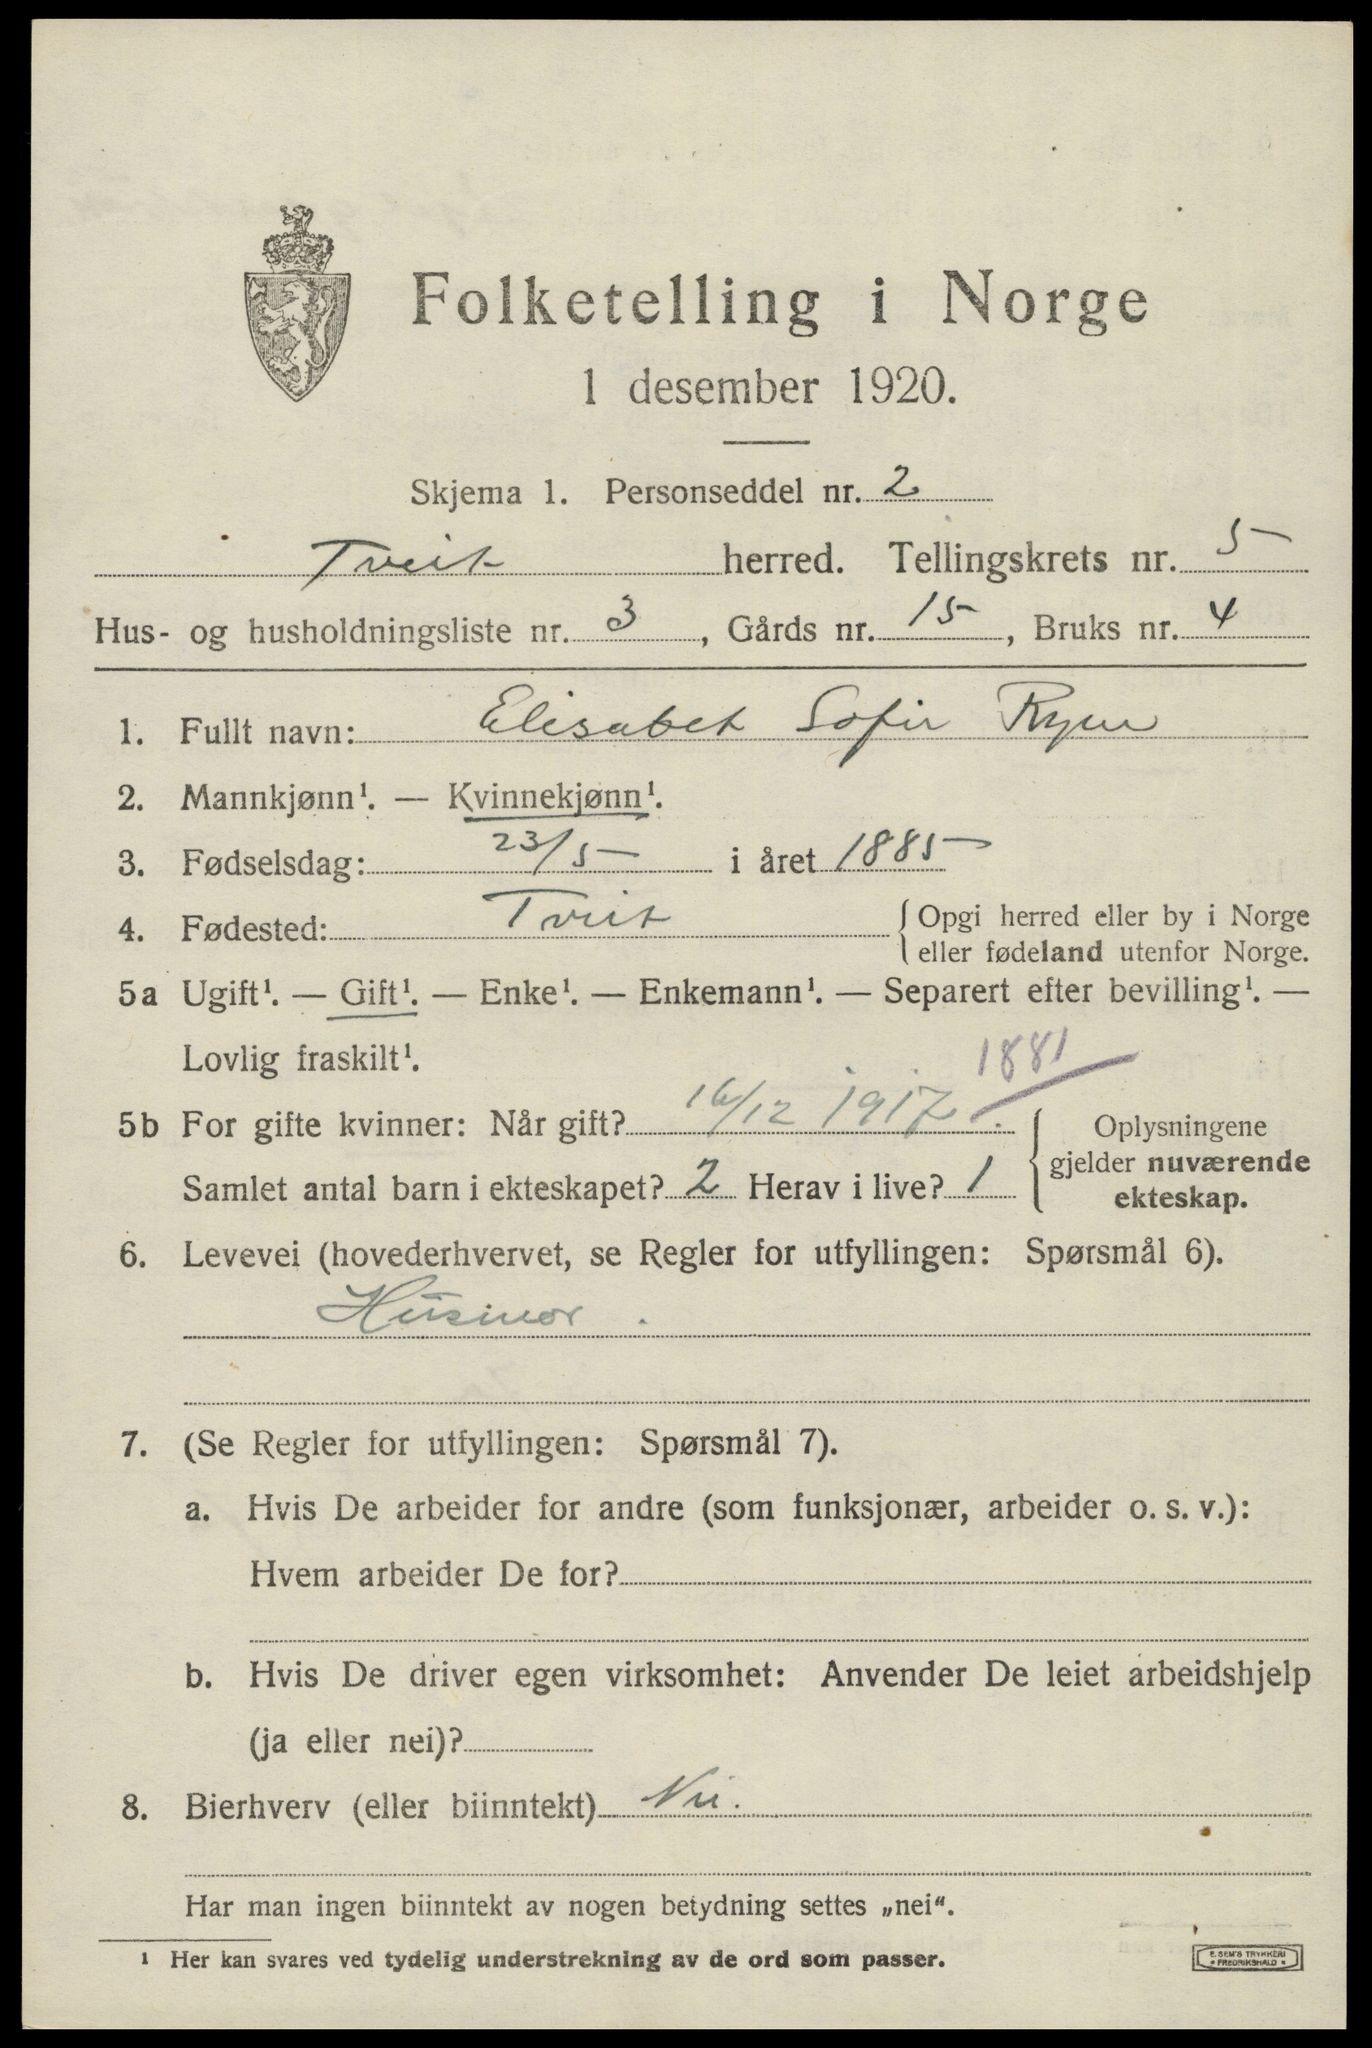 Folketelling i Norge
1 desember 1920.
Skjema 1. Personseddel nr. 2
Tveit herred. Tellingskrets nr. 5
Hus- og husholdningsliste nr. 3, Gårds nr. 15, Bruks nr. 4
1. Fullt navn: Elisabet Sofie Ryen
2. Mannkjønn¹. — Kvinnekjønn¹.
3. Fødselsdag: 23/5 i året 1885
4. Fødested: Tveit { Opgi herred eller by i Norge
eller fødeland utenfor Norge.
5a Ugift¹. — Gift¹. — Enke¹. — Enkemann¹. — Separert efter bevilling¹. —
Lovlig fraskilt¹.
1881
5b For gifte kvinner: Når gift? 16/12 1917. { Oplysningene
gjelder nuværende
ekteskap.
Samlet antal barn i ekteskapet? 2 Herav i live? 1
6. Levevei (hovederhvervet, se Regler for utfyllingen: Spørsmål 6).
Husmor.
7. (Se Regler for utfyllingen: Spørsmål 7).
a. Hvis De arbeider for andre (som funksjonær, arbeider o. s. v.):
Hvem arbeider De for?
b. Hvis De driver egen virksomhet: Anvender De leiet arbeidshjelp
(ja eller nei)?
8. Bierhverv (eller biinntekt) Nei.
Har man ingen biinntekt av nogen betydning settes „nei“.
¹ Her kan svares ved tydelig understrekning av de ord som passer.
E. SEM'S TRYKKERI
* FREDRIKSHALD *